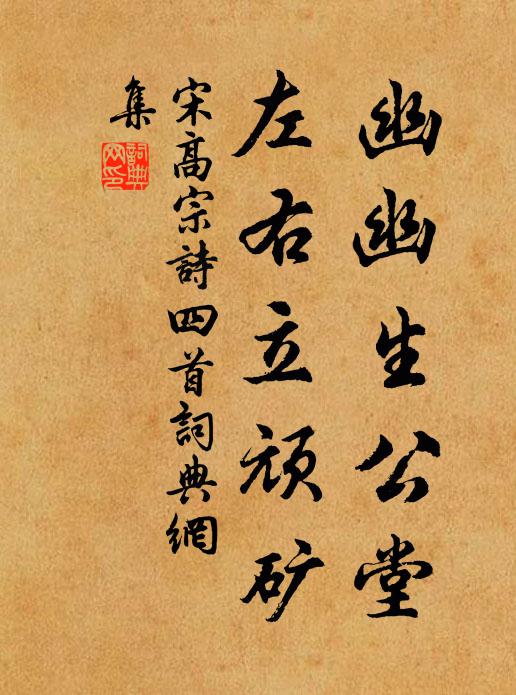 幽幽生公堂
左右立顽矿
宋高宗詩四首詞典網
集
詞典
网印